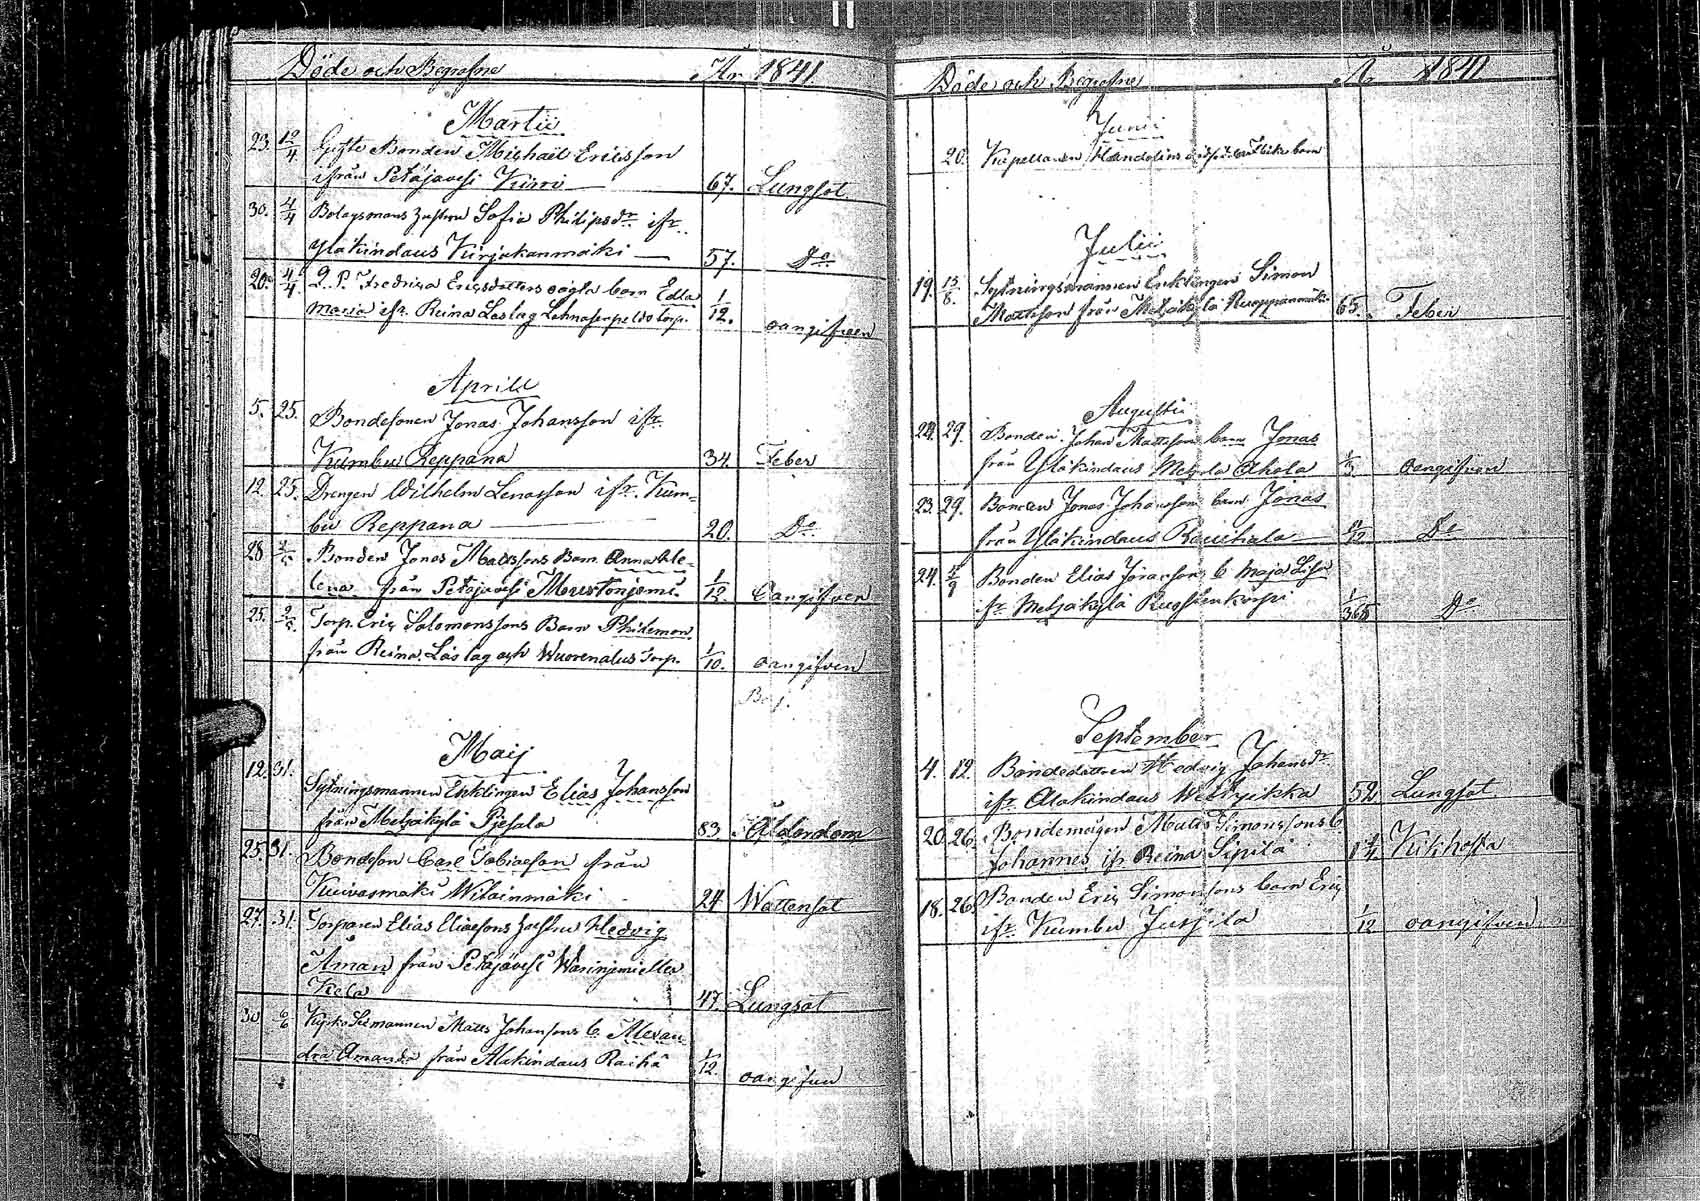 Döde och Begrafne År 1841
Martii
23. 12/4. Gifte Bonden Michaël Ericsson
ifrån Petäjävesi Kirri 67. Lungsot
30. 4/4 Bolagsmans hustrun Sofia Philipsdr ifr.
Yläkindaus Kirjakanmäki 57. Do
20. 4/4. Fredrica Ericsdotters oägta barn Edla
Maria ifr. Reina Laslag torp. 1/12. oangifven
Aprill
5. 25. Bondesonen Jonas Johansson ifr.
Kumbu Reppana 34. Feber
12. 25. Drengen Wilhelm Lenasson ifr. Kum-
bu Reppana 20. Do
28 2/5. Bonden Jonas Mattssons Barn Anna He-
lena från Petäjävesi 1/12. Oangifven
25. 2/5. Torp. Eric Salomonssons Barn Philemon
från Reina Laslag och Torp. 1/10. oangifven
Maij
12. 31. Sytningsmannen Enklingen Elias Johansson
från Metzäkylä Pjesala 83. Ålderdom
25. 31. Bondeson Carl Tobiasson från
Kuivasmäki Wilainmäki 24 Wattensot
27. 31. Torparen Elias Eliassons hustru Hedvig
Åman från Petäjävesi
Kela 47. Lungsot
30 6/6 Matts Johanssons b. Alexan-
dra Amanda från Alakindaus Raihä 1/12. oangifven
Döde och Begrafne År 1841
Junii
20. Kapellanen barn
Julii
19. 15/8. Sytningsmannen Enklingen Simon
Mattsson från Metzäkylä Ruoppanmäki 65. Feber
Augusti
24. 29. Bonden Johan Mattsson barn Jonas
från Yläkindaus Ahola 1/3 oangifven
23. 29. Bonden Jonas Johansson barn Jonas
från Yläkindaus Rauhala Do
24. 5/9 Bonden Elias Jöransson b Maja Lisa
ifr Metzäkylä 1/365 Do
September
4. 12. Bondedottren Hedvig Johansdr
ifr. Alakindaus 52 Lungsot
20. 26. Bondemågen Matts Simonssons b
Johannes ifr Reina Sipilä 1 1/4 Kikhosta
18. 26. Bonden Eric Simonssons barn Eric
ifr. Kumbu Jussila 1/12 oangifven